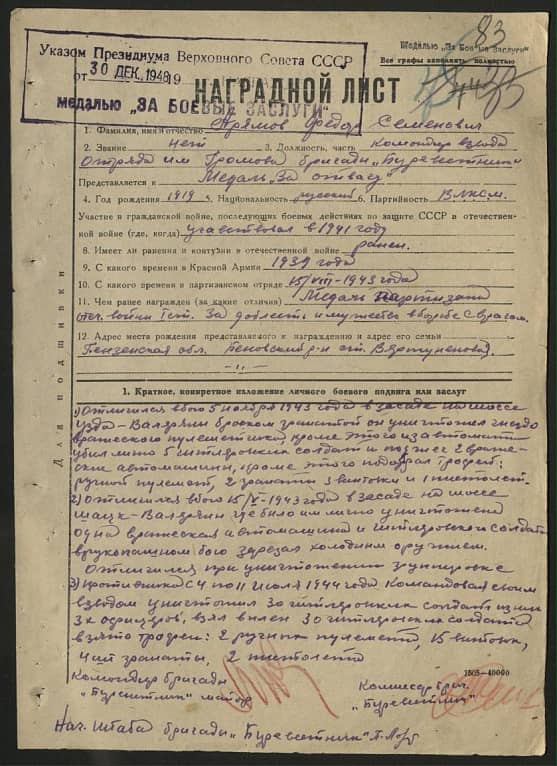 83
Медалью „За Боевые Заслуги"
Указом Президиума Верховного Совета СССР
от 30 ДЕК. 1948 19
Все графы заполнять полностью
НАГРАДНОЙ ЛИСТ
медалью „ЗА БОЕВЫЕ ЗАСЛУГИ"
1. Фамилия, имя и отчество Федор Семенович
2. Звание нет 3. Должность, часть Командир взвода
Отряда им Громова бригады „Буревестник"
Представляется к Медаль „За отвагу"
4. Год рождения 1919 5. Национальность русский 6. Партийность ВЛКСМ.
Участие в гражданской войне, последующих боевых действиях по защите СССР и отечествен-
ной войне (где, когда) участвовал в 1941 году
8. Имеет ли ранения и контузии в отечественной войне ранен.
9. С какого времени в Красной Армии 1939 года
10. С какого времени в партизанском отряде 15/VIII-1943 года
11. Чем ранее награжден (за какие отличия) Медаль партизана
отеч. войны I ст. За доблесть и мужество в борьбе с врагом.
12. Адрес места рождения представляемого к награждению и адрес его семьи
Пензенская обл. р-н ст.
Для подшивки
1. Краткое, конкретное изложение личного боевого подвига или заслуг
1) Отличился в бою 5 ноября 1943 года в засаде на шоссе
Узда-Валерьяны броском гранатой он уничтожил гнездо
вражеского пулеметчика, кроме этого из автомата
убил лично 5 гитлеровских солдат и 2 враже-
ские автомашины, кроме этого подобрал трофеи:
ручной пулемет, 2 гранаты 3 винтовки и 1 пистолет.
2) Отличился в бою 15/V-1943 года в засаде на шоссе
Шацк-Валерьяны где было им лично уничтожено
одна вражеская автомашина и гитлеровского солдата
в рукопашном бою зарезал холодным оружием.
Отличился при уничтожении группировки
3) противника с 4 по 11 июля 1944 года Командовая своим
взводом уничтожил 30 гитлеровских солдат из них
3х офицеров, взял в плен 30 гитлеровских солдат
взято трофеи: 2 ручных пулемета, 15 винтовок,
гранаты, 2 пистолета
1505-40000
Командир бригады
Комиссар бриг.
майор
„Буревестник"
Нач. Штаба бригады „Буревестник"